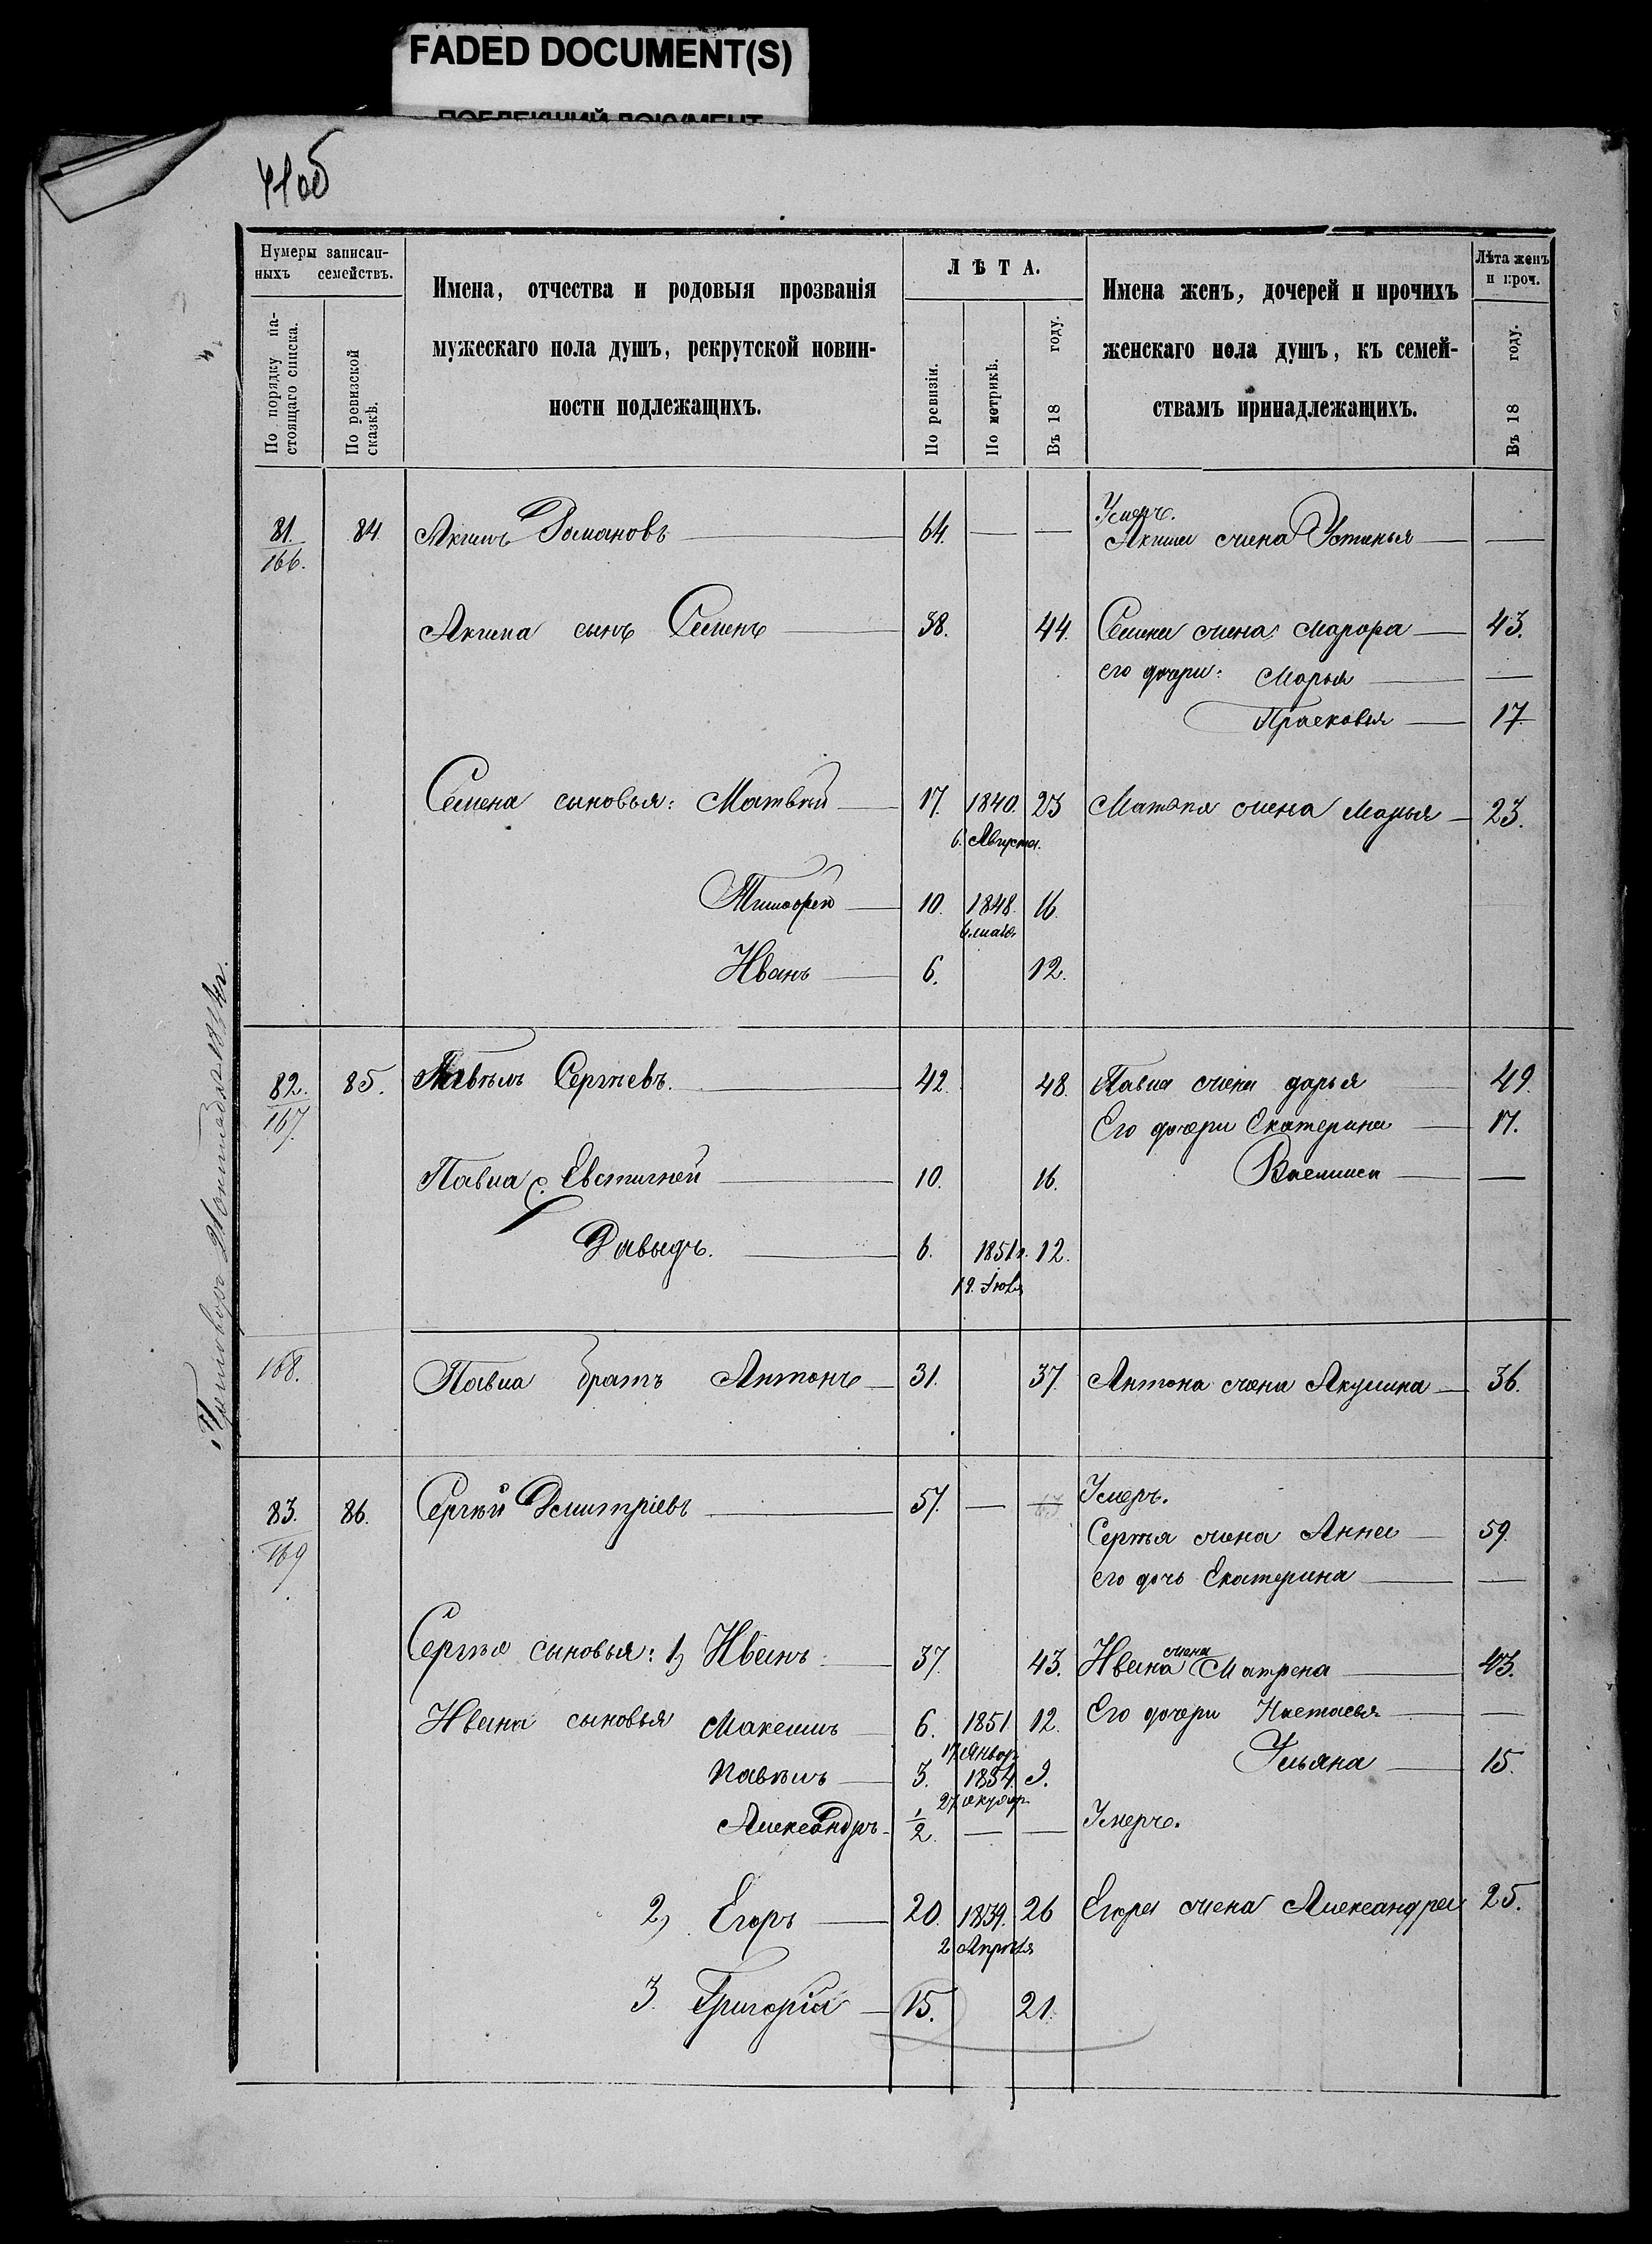 FADED DOCUMENT(S)
ПОБЛЕКШИЙ ДОКУМЕНТ
41об
Нумеры записан-
ныхъ семействъ.
По порядку на-
стоящаго списка.
По ревизской
сказкѣ.
Имена, отчества и родовыя прозванія
мужескаго пола душъ, рекрутской повин-
ности подлежащихъ.
ЛѢТА.
По ревизіи.
По метрикѣ.
Въ 18 году.
Имена женъ, дочерей и прочихъ
женскаго пола душъ, къ семей-
ствамъ принадлежащихъ.
Лѣта женъ
и проч.
Въ 18 году.
Умеръ.
81. 84. Акимъ Романовъ 64. — — Акима жена Устинья —
166.
Акима сынъ Семенъ 38. 44. Семена жена Марфа 43.
его дочери: Марья —
Прасковья 17.
Семена сыновья: Матвѣй 17. 1840. 23 Матвѣя жена Марья 23.
6. Августа.
Тимофей 10. 1848. 16.
Иванъ 6. 12.
82. 85. Павелъ Сергѣевъ. 42. 48. Павла жена дарья 49.
167. Его дочери Екатерина 17.
Павла с. Евстигней 10. 16. Василиса —
Давыдъ. 6. 1851г. 12.
19. Іюля
168. Павла братъ Антонъ 31. 37. Антона жена Акулина 36.
83. 86. Сергѣй Дмитріевъ 57. — Умеръ.
169 Сергѣя жена Анна 59.
его дочь Екатерина —
Сергѣя сыновья: 1) Иванъ 37. 43. Ивана жена Матрена 43.
Ивана сыновья Максимъ 6. 1851. 12. Его дочери Настасья —
17 Январ
Павелъ 3. 1854. 9. Ульяна 15.
Александръ 1/2. — — Умеръ.
2) Егоръ 20. 1839. 26 Егора жена Александра 25.
2 Апрѣля
3. Григорій 15. 21.